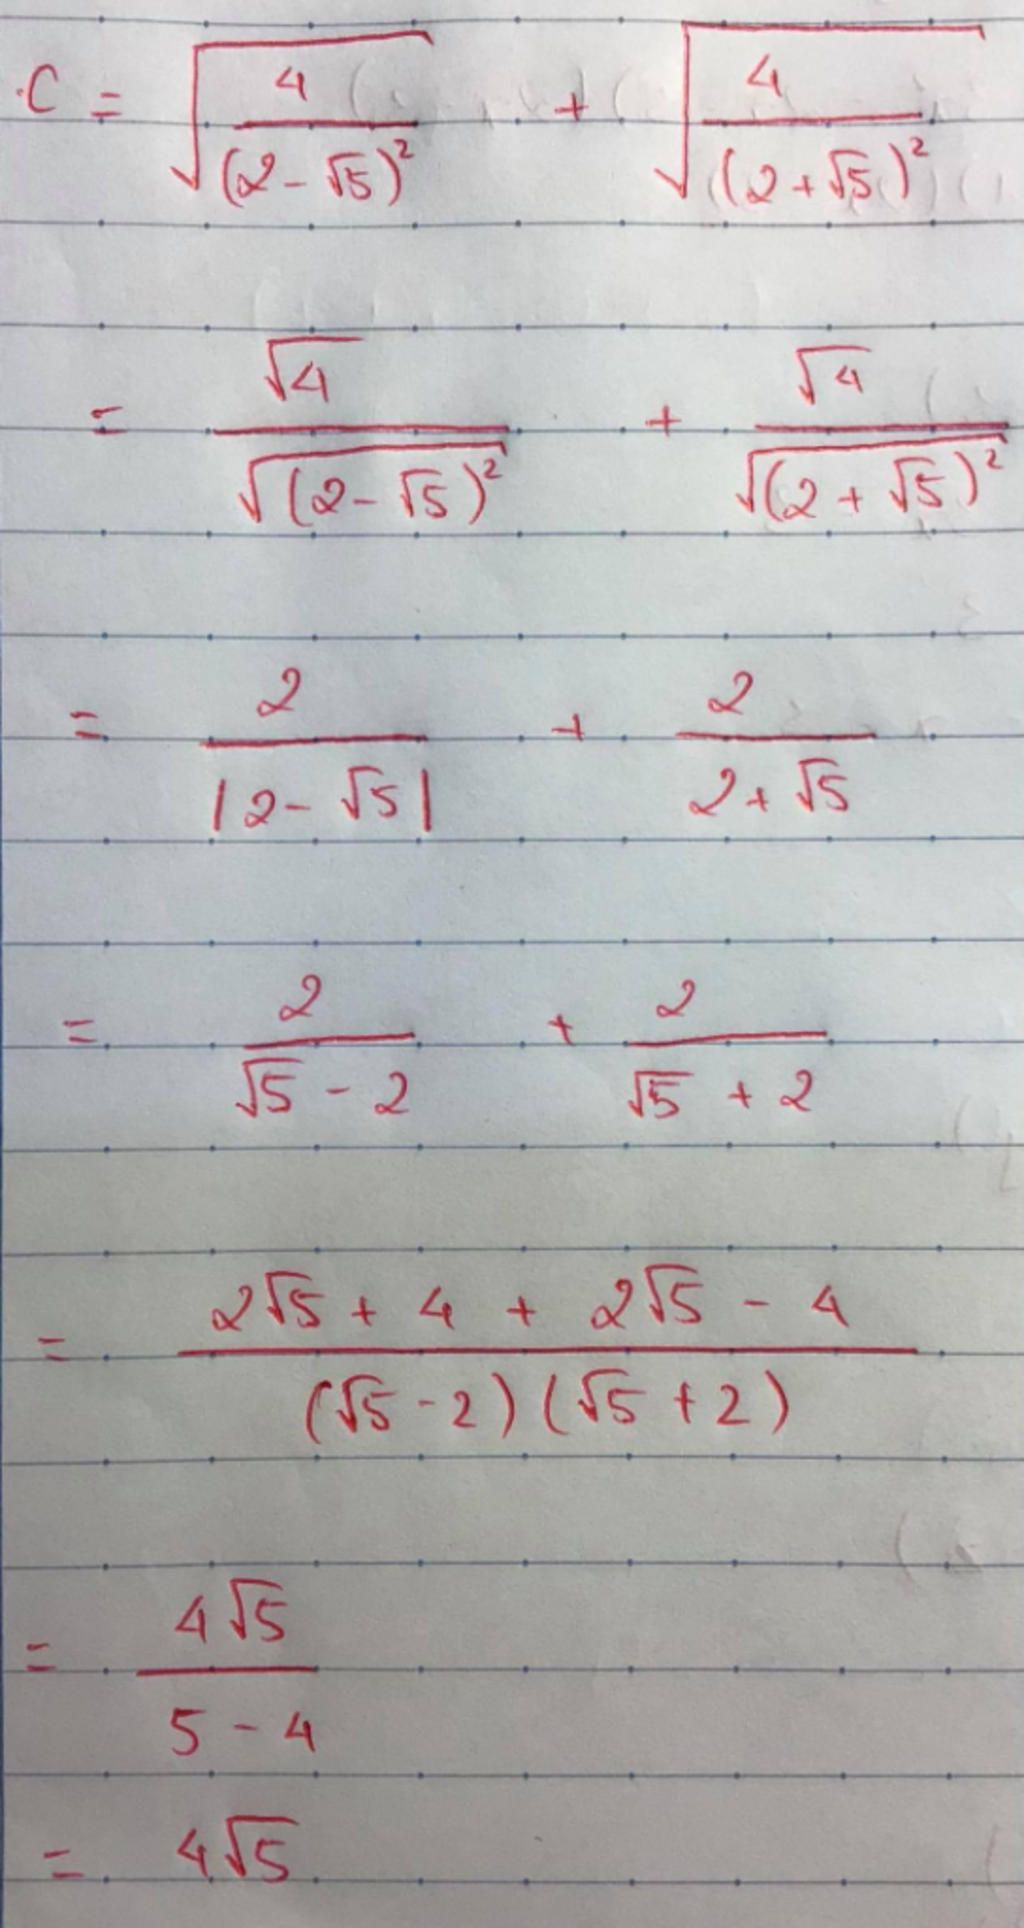 C = √(4/(2-√5)²) + √(4/(2+√5)²)
= √4/√((2-√5)²) + √4/√((2+√5)²)
= 2/|2-√5| + 2/(2+√5)
= 2/(√5-2) + 2/(√5+2)
= (2√5 + 4 + 2√5 - 4)/((√5-2)(√5+2))
= 4√5/(5-4)
= 4√5